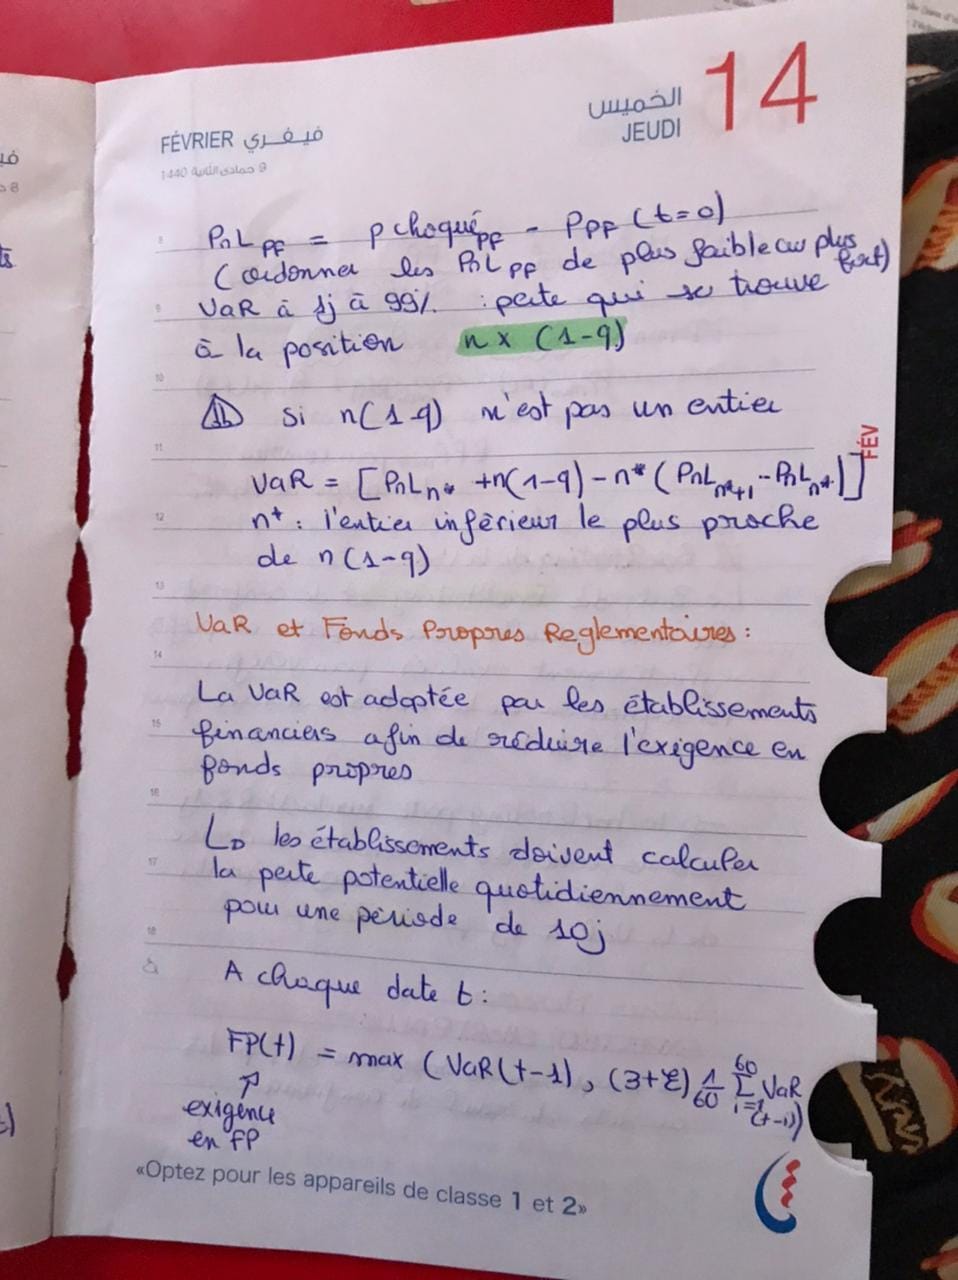 14
الخميس
JEUDI
FÉVRIER فيفري
9 جمادى الثانية 1440
PnL PF = P choqué PF - P PF (t=0)
(ordonner les PnL PF de plus faible au plus fort)
VaR à 1j à 99% : perte qui se trouve
à la position n x (1-q)
⚠ si n(1-q) n'est pas un entier
VaR = [PnL n* + n(1-q) - n* (PnL n*+1 - PnL n*)]
FÉV
n* : l'entier inférieur le plus proche
de n(1-q)
VaR et Fonds Propres Reglementaires :
La VaR est adoptée par les établissements
financiers afin de réduire l'exigence en
fonds propres
L> les établissements doivent calculer
la perte potentielle quotidiennement
pour une période de 10j
A chaque date t :
FP(t) = max (VaR(t-1), (3+ε) 1/60 60 Σ i=1 VaR (t-i))
↑
exigence
en FP
«Optez pour les appareils de classe 1 et 2»